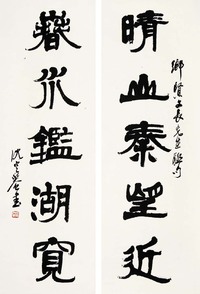 晴山秦望近
鄉賢文長先生聯句
春水鑑湖寬
沈定庵書